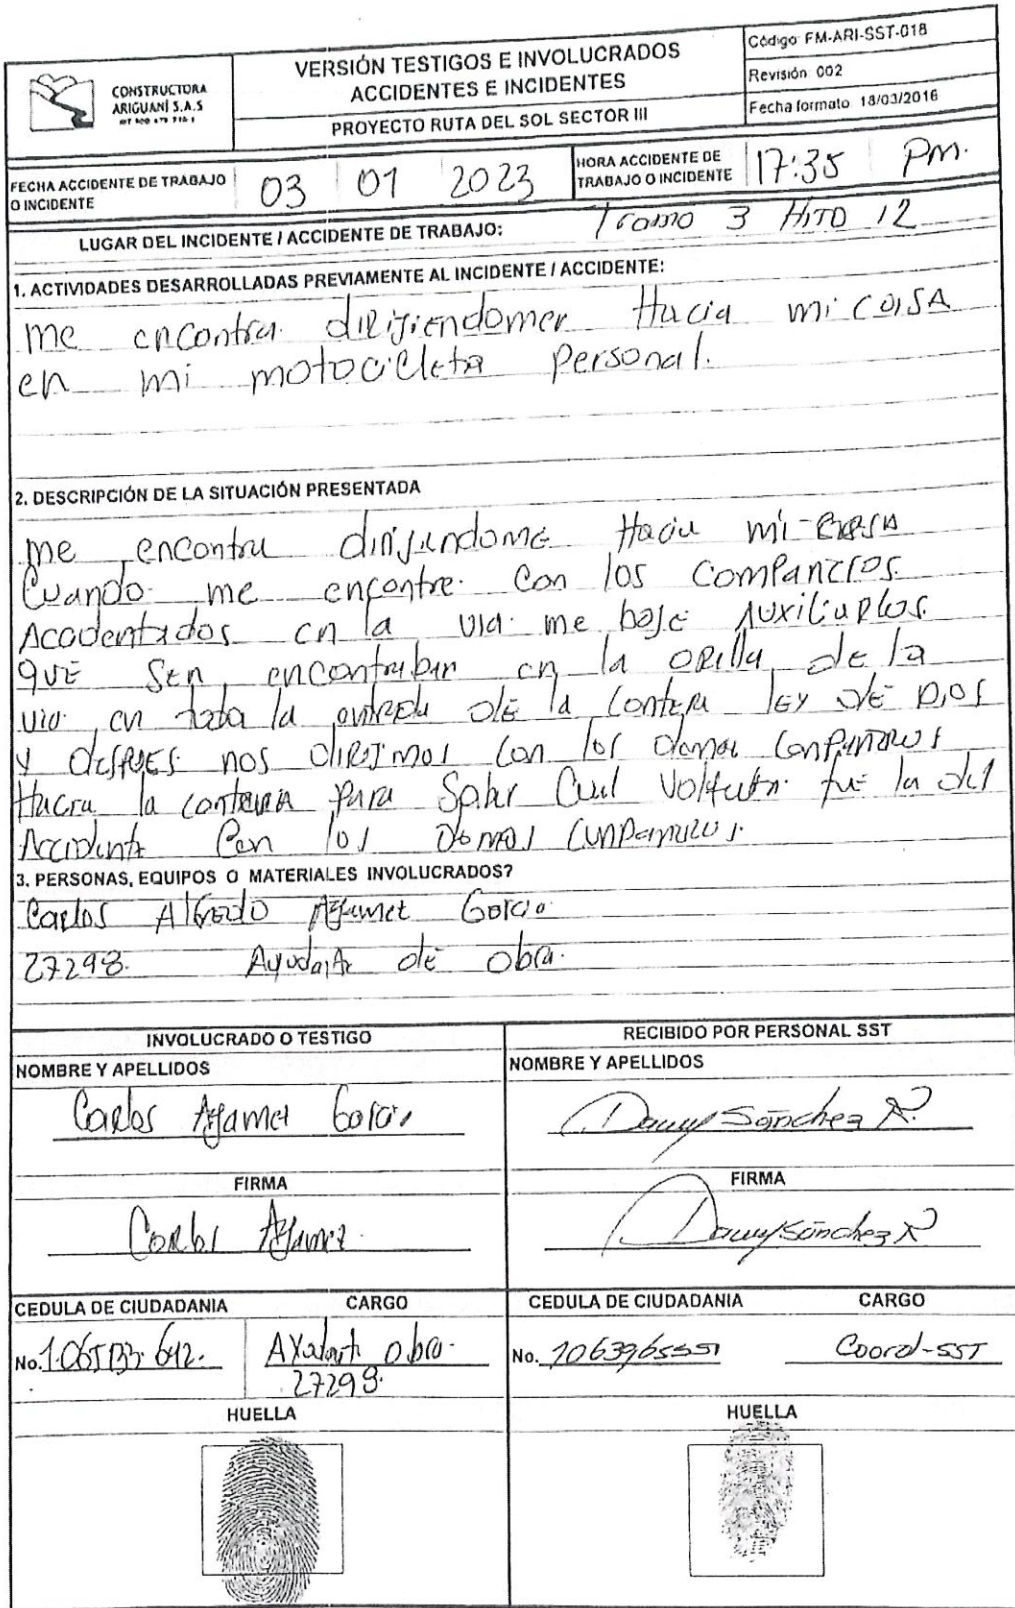 CONSTRUCTORA
ARIGUANÍ S.A.S
VERSIÓN TESTIGOS E INVOLUCRADOS
ACCIDENTES E INCIDENTES
PROYECTO RUTA DEL SOL SECTOR III
Código FM-ARI-SST-018
Revisión 002
Fecha formato 18/03/2016
FECHA ACCIDENTE DE TRABAJO
O INCIDENTE
03 01 2023
HORA ACCIDENTE DE
TRABAJO O INCIDENTE
17:35 Pm.
LUGAR DEL INCIDENTE / ACCIDENTE DE TRABAJO: Tramo 3 HiTO 12
1. ACTIVIDADES DESARROLLADAS PREVIAMENTE AL INCIDENTE / ACCIDENTE:
me encontra dirijiendomer Hacia mi CasA
en mi motocicleta Personal.
2. DESCRIPCIÓN DE LA SITUACIÓN PRESENTADA
me encontra dirijendome Hacia mi
Cuando me encontre con los compañeros
Accidentados en la via me baje Auxiliarlos
que en la orilla de la
via en toda la de la LEY DE DIOS
y despues nos dirijimos con los demas
Hacia la para Saber Cual fue la del
Accidente Con los Demas
3. PERSONAS, EQUIPOS O MATERIALES INVOLUCRADOS?
Carlos Alfredo Garcia
27298. Ayudante de obra.
INVOLUCRADO O TESTIGO
NOMBRE Y APELLIDOS
Carlos Garcia
FIRMA
Carlos
CEDULA DE CIUDADANIA
No.
CARGO
obra.
27298.
HUELLA
RECIBIDO POR PERSONAL SST
NOMBRE Y APELLIDOS
Danny Sánchez R.
FIRMA
Danny Sánchez R
CEDULA DE CIUDADANIA
No. 1063965551
CARGO
Coord-SST
HUELLA